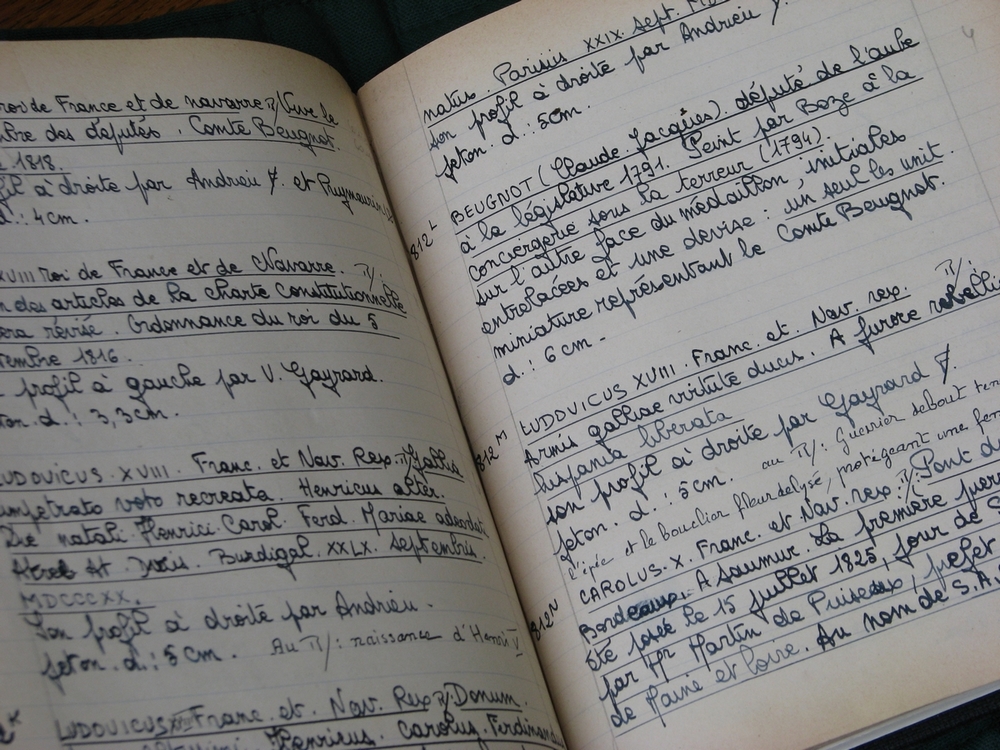 roi de France et de navarre R/ Vive le
bre des députés. Comte Beugnot.
1818.
fil à droite par Andrieu F. et Puymaurin
d.: 4cm.
XVIII roi de France et de Navarre. R/:
n des articles de la charte Constitutionnelle
sera révisé. Ordonnance du roi du 5
tembre 1816.
profil à gauche par V. Gayrard.
ton. d.: 3,3cm.
LUDOVICUS. XVIII. Franc. et Nav. Rex. R/ Gallis
impetrato voto recreata. Henricus alter.
Die natali. Henrici. Carol. Ferd. Mariae adeodati
Burdigal. XXIX. Septembris
MDCCCXX.
Son profil à droite par Andrieu.
jeton. d.: 5cm. Au R/: naissance d'Henri V
LUDOVICUS XVIII Franc. et. Nav. Rex R/ Donum.
Henricus. Carolus. Ferdinand
Parisiis XXIX. Sept.
natus.
son profil à droite par Andrieu F.
jeton. d.: 5cm.
812L BEUGNOT (Claude. Jacques). député de l'aube
à la législature 1791. Peint par Boze à la
conciergerie sous la terreur (1794).
sur l'autre face du médaillon, initiales
entrelacées et une devise: un seul les unit.
miniature représentant le Comte Beugnot.
d.: 6cm.
812M LUDOVICUS XVIII. Franc. et. Nav. rex. R/:
Armis galliae virtute ducis. A furore rebelli
hispania liberata
son profil à droite par Gayrard F.
jeton. d.: 5cm. au R/: Guerrier debout ten
l'épée et le bouclier fleurdelysé, protégeant une fem
812N CAROLUS. X. Franc. et Nav. rex. R/ Pont de
Bordeaux. A Saumur. La première pierre
été posée le 15 juillet 1825, jour de S
par Mr Martin de Puiseux, préfet
de Maine et Loire. Au nom de S.A.